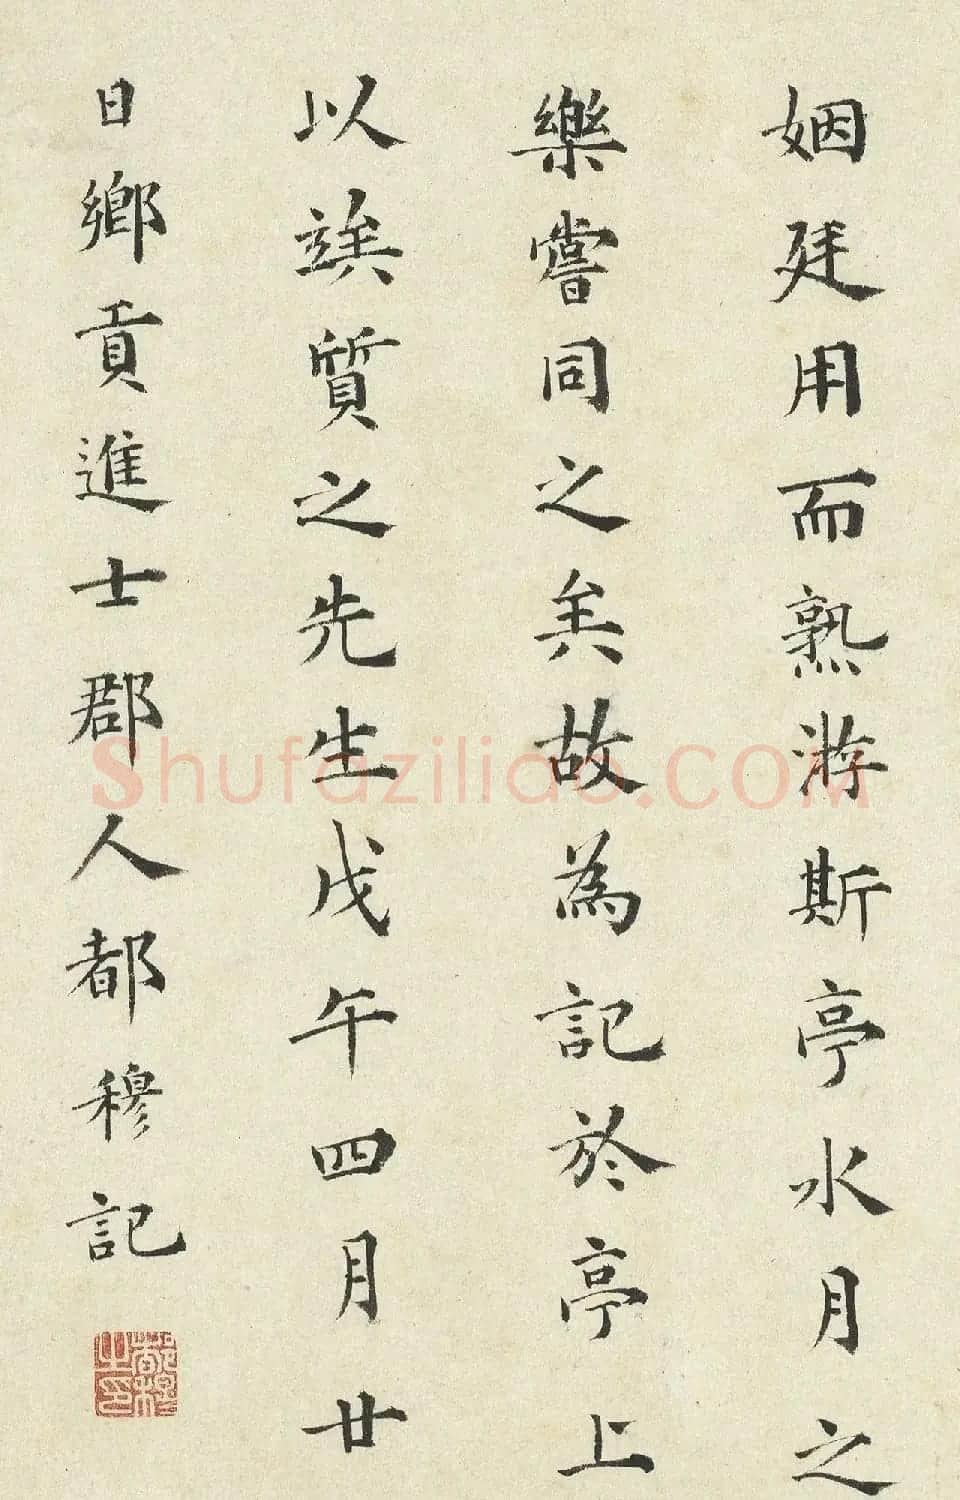 姻廷用而熟游斯亭水月之
樂嘗同之矣故為記於亭上
以竢質之先生戊午四月廿
日鄉貢進士郡人都穆記
都穆之印
Shufaziliao.com